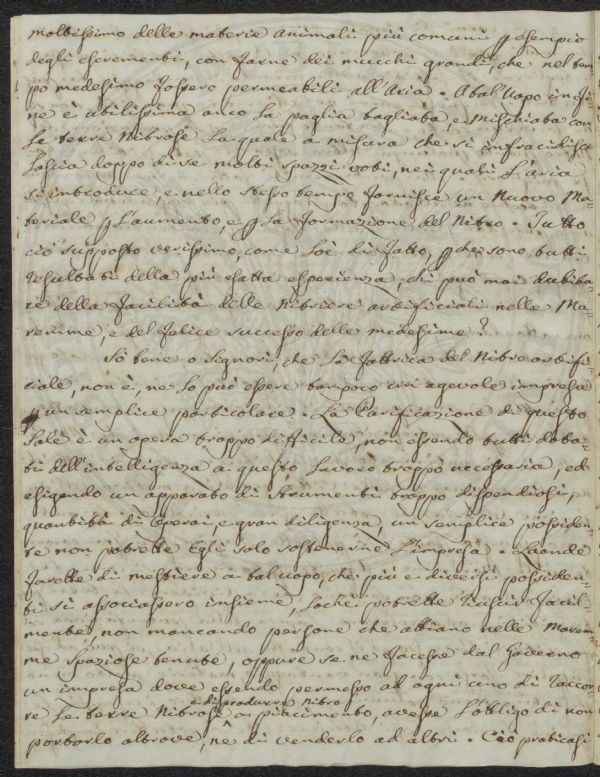 moltissimo delle materie animali più comuni ꝑ esempio
degli escrementi, con farne dei mucchi grandi, che nel tem=
po medesimo fossero permeabili all'Aria. A tal'uopo infi=
ne è utilissima anco la paglia tagliata, e mischiata con
le terre Nitrose la quale a misura che si infracidisce
lascia doppo di se molti spazzi voti, nei quali l'aria
si introduce, e nello stesso tempo fornisce un Nuovo Ma=
teriale ꝑ l'aumento, e ꝑ la formazione del Nitro. Tutto
ciò supposto verissimo, come loè di fatto, ꝑchè sono tutti
resultati della più esatta esperienza, chi può mai dubita=
re della facilità delle Nitriere artificiali nelle Ma=
remme, e del felice successo delle medesime?
Sò bene o Signori, che la fattrica del Nitro artifi=
ciale, non è, ne lo può essere tampoco un'agevole impresa
ꝑ un semplice particolare. La Purificazione di questo
Sale è un opera troppo difficile, non essendo tutti dota=
ti dell'intelligenza a questo lavoro troppo necessaria, ed
esigendo un apparato di Strumenti troppo dispendiosi,
quantità di Operai, e gran diligenza, un semplice possiden=
te non potrette Egli solo sostenerne l'impresa. Laonde
farette di mestiere a tal uopo, che più e diversi possiden=
ti si associassero insieme, loche potrette riuscir facil=
mente, non mancando persone che attiano nelle Marem=
me spaziose tenute, oppure se ne facesse dal Governo
un impresa dove essendo permesso ad ogni uno di raccor=
re le terre Nitrose
e di produrre Nitro
a piacimento, avesse l'obbligo di non
portarlo altrove, ne di venderlo ad altri. Ciò praticasi